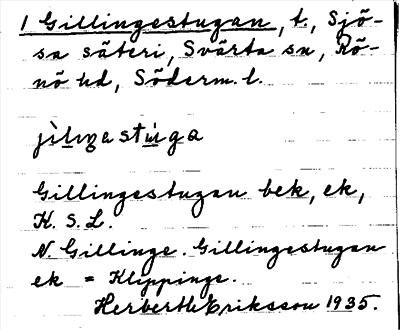 1 Gillingestugan, t., Sjö-
sa säteri, Svärta sn, Rö-
nö hd, Söderm. l.
Gillingestugan bek, ek,
K. S. L.
N. Gillinge. Gillingestugan
ek = Klippinge.
Herberth Eriksson 1935.